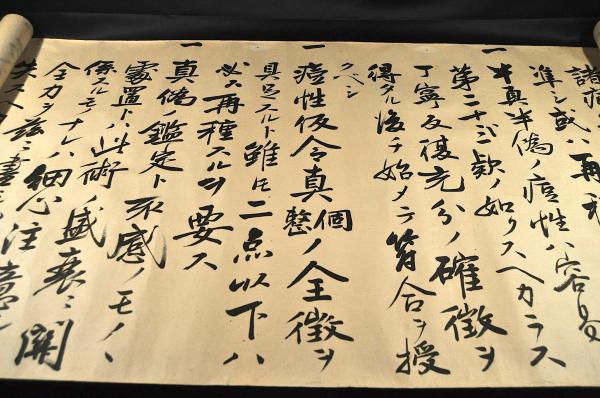 諸
準シ或ハ再
一 半真半偽ノ痘性ハ容易
第二十三欵ノ如クスヘカラス
丁寧反復充分ノ確徴ヲ
得タル後チ始メテ符合ヲ授
クヘシ
一 痘性仮令真個ノ全徴ヲ
整
具足スルト雖モ二点以下ハ
必ス再種スルヲ要ス
一 真偽ノ鑑定ト不感ノモノヽ
處置トハ此術ノ盛衰ニ關
係スルモノナレハ細心注意シ
全力ヲ茲ニ